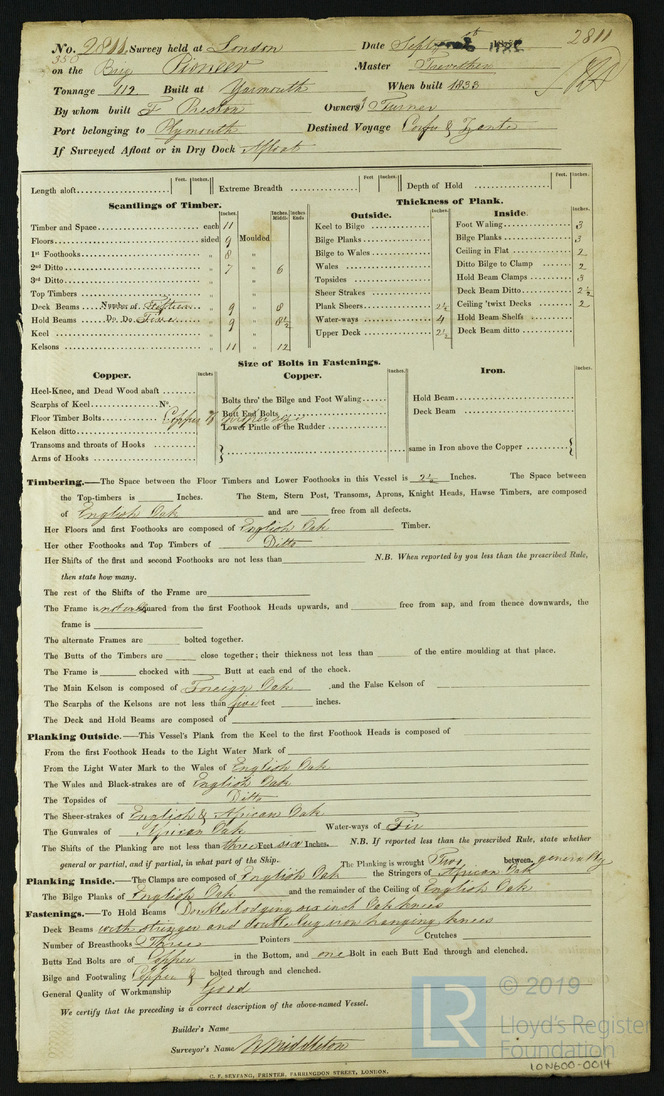 No. 2811 Survey held at London Date Septr 2811
350
on the Brig Pioneer Master
Tonnage 112 Built at Yarmouth When built 1833
By whom built F Preston Owners Turner
Port belonging to Plymouth Destined Voyage Corfu & Zante
If Surveyed Afloat or in Dry Dock Afloat
Length aloft Feet. Inches. Extreme Breadth Feet Inches. Depth of Hold Feet. Inches.
Scantlings of Timber. Thickness of Plank.
Inches. Inches. Middle Inches Ends Outside. Inches. Inside. Inches.
Timber and Space each 11 Keel to Bilge Foot Waling 3
Floors sided 9 Moulded Bilge Planks Bilge Planks 3
1st Foothooks " 8 " Bilge to Wales Ceiling in Flat 2
2nd Ditto " 7 " 6 Wales Ditto Bilge to Clamp 2
3rd Ditto " " Topsides Hold Beam Clamps 3
Top Timbers " " Sheer Strakes Deck Beam Ditto 2½
Deck Beams Number of Fifteen " 9 " 8 Plank Sheers 2½ Ceiling 'twixt Decks 2
Hold Beams Do. Do. " 9 " 8½ Water-ways 4 Hold Beam Shelfs
Keel " " Upper Deck 2½ Deck Beam ditto
Kelsons " 11 " 12
Size of Bolts in Fastenings.
Copper. Inches Copper. Inches Iron. Inches
Heel-Knee, and Dead Wood abaft Bolts thro' the Bilge and Foot Waling Hold Beam
Scarphs of Keel No. Butt End Bolts Deck Beam
Floor Timber Bolts Copper of proper size
Kelson ditto Lower Pintle of the Rudder
Transoms and throats of Hooks same in Iron above the Copper
Arms of Hooks
Timbering.—The Space between the Floor Timbers and Lower Foothooks in this Vessel is 2½ Inches. The Space between
the Top-timbers is Inches. The Stem, Stern Post, Transoms, Aprons, Knight Heads, Hawse Timbers, are composed
of English Oak and are free from all defects.
Her Floors and first Foothooks are composed of English Oak Timber.
Her other Foothooks and Top Timbers of Ditto
Her Shifts of the first and second Foothooks are not less than N.B. When reported by you less than the prescribed Rule,
then state how many.
The rest of the Shifts of the Frame are
The Frame is not well squared from the first Foothook Heads upwards, and free from sap, and from thence downwards, the
frame is
The alternate Frames are bolted together.
The Butts of the Timbers are close together; their thickness not less than of the entire moulding at that place.
The Frame is chocked with Butt at each end of the chock.
The Main Kelson is composed of Foreign Oak and the False Kelson of
The Scarphs of the Kelsons are not less than five feet inches.
The Deck and Hold Beams are composed of
Planking Outside.—This Vessel's Plank from the Keel to the first Foothook Heads is composed of
From the first Foothook Heads to the Light Water Mark of
From the Light Water Mark to the Wales of English Oak
The Wales and Black-strakes are of English Oak
The Topsides of Ditto
The Sheer-strakes of English & African Oak
The Gunwales of African Oak Water-ways of Fir
The Shifts of the Planking are not less than three Feet six Inches. N.B. If reported less than the prescribed Rule, state whether
general or partial, and if partial, in what part of the Ship. The Planking is wrought Two between, generally
Planking Inside.—The Clamps are composed of English Oak the Stringers of African Oak
The Bilge Planks of English Oak and the remainder of the Ceiling of English Oak
Fastenings.—To Hold Beams Double lodging six inch Oak knees
Deck Beams with stringer and double lug iron hanging knees
Number of Breasthooks Three Pointers Crutches
Butts End Bolts are of Copper in the Bottom, and one Bolt in each Butt End through and clenched.
Bilge and Footwaling Copper & bolted through and clenched.
General Quality of Workmanship Good
We certify that the preceding is a correct description of the above-named Vessel.
Builder's Name
Surveyor's Name W Middleton
C. F. SEYFANG, PRINTER, FARRINGDON STREET, LONDON.
LR © 2019
Lloyd's Register
Foundation
LON600-0014